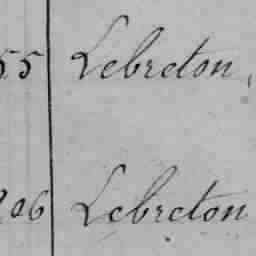 55 Lebreton,
206 Lebreton